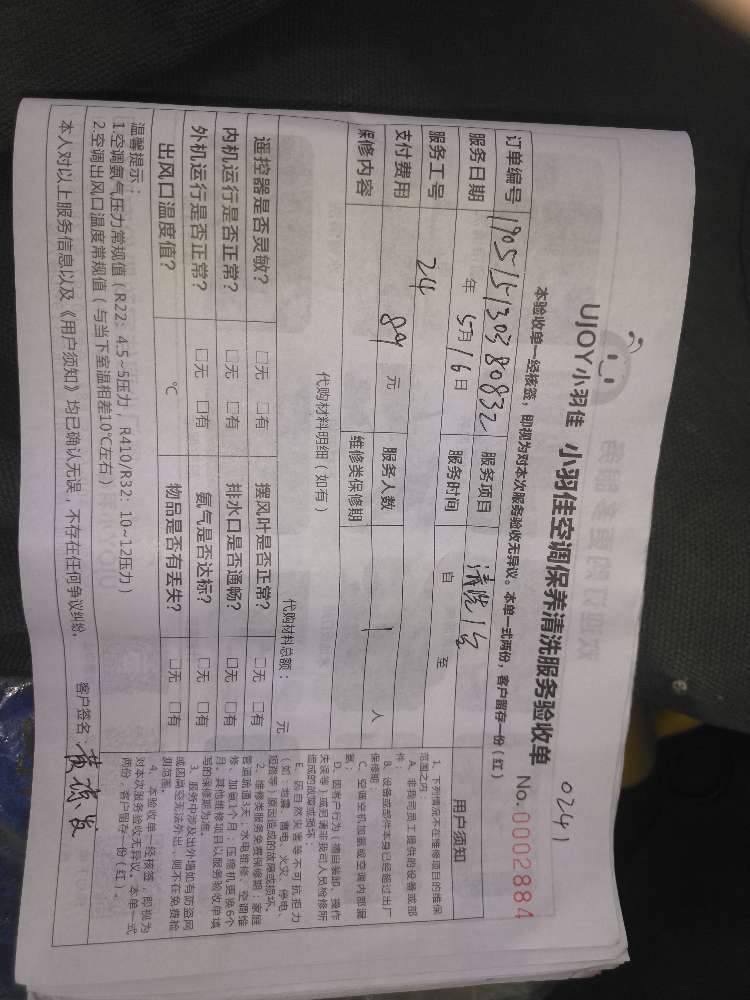 0241
UJOY小羽佳 小羽佳空调保养清洗服务验收单 No.0002884
本验收单一经核签，即视为对本次服务验收无异议。本单一式两份，客户留存一份（红）
订单编号 190515130380832 服务项目 清洗1台
服务日期 年 5月16日 服务时间 自 至
服务工号 24
支付费用 89 元 服务人数 1 人
保修内容 维修类保修期
代购材料明细（如有） 代购材料总额： 元
遥控器是否灵敏？ □无 □有 摆风叶是否正常？ □无 □有
内机运行是否正常？ □无 □有 排水口是否通畅？ □无 □有
外机运行是否正常？ □无 □有 氨气是否达标？ □无 □有
出风口温度值？ ℃ 物品是否有丢失？ □无 □有
温馨提示：
1.空调氨气压力常规值（R22：4.5~5压力，R410/R32：10~12压力）
2.空调出风口温度常规值（与当下室温相差10℃左右）
本人对以上服务信息以及《用户须知》均已确认无误，不存在任何争议纠纷。 客户签名：黄
用户须知
1、下列情况不在维修项目的维保
范围之内：
A、非我司员工提供的设备或部
件；
B、设备或部件本身已经超过出厂
保修期；
C、空调空机加氨或空调内部漏
氨；
D、因客户行为（擅自装卸、操作
失误等）或另请非我司人员检修所
造成的故障或损坏
E、因自然灾害等不可抗拒力
（如：地震、雷电、火灾、停电、
短路等）原因造成的故障或损坏。
2、维修类服务免费保修期：家庭
管道疏通3天；水电维修、空调维
修、加氨1个月；压缩机更换6个
月。其他维修项目以服务验收单填
写的保修期为准。
3、服务中涉及出外墙如有防盗网
或因高空无法外出，则不在免费检
测范围。
4、本验收单一经核签，即视为
对本次服务验收无异议。本单一式
两份，客户留存一份（红）。